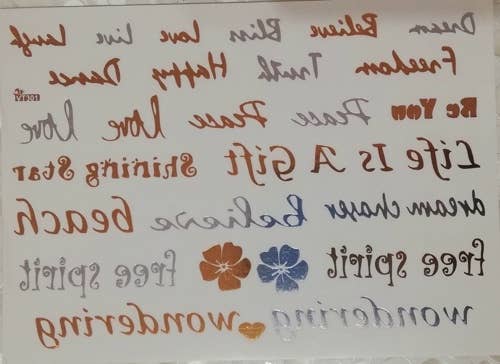 Dream Believe Bliss Love Live Laugh
Freedom Truth Happy Dance
Be You Peace Peace love love
Life Is A Gift Shining Star
dream chaser believe beach
free spirit free spirit
wondering wondering